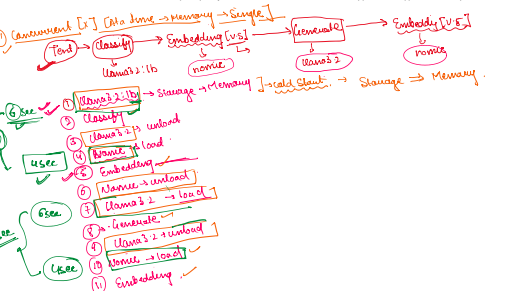 Concurrent [x] [At a time → Memory → Single]
Text → Classify → Embedding [V.S] → Generate → Embeddg [V.S]
llama3.2:1b
nomic
llama3.2
nomic
① llama3.2:1b → Storage → Memory ] → cold Start → Storage → Memory.
② Classify
③ llama3.2 → unload
④ Nomic → load
⑤ Embedding
⑥ Nomic → unload
⑦ llama3.2 → load
⑧ Generate
⑨ llama3.2 → unload
⑩ Nomic → load
⑪ Embedding
6 sec
4 sec
6 sec
4 sec